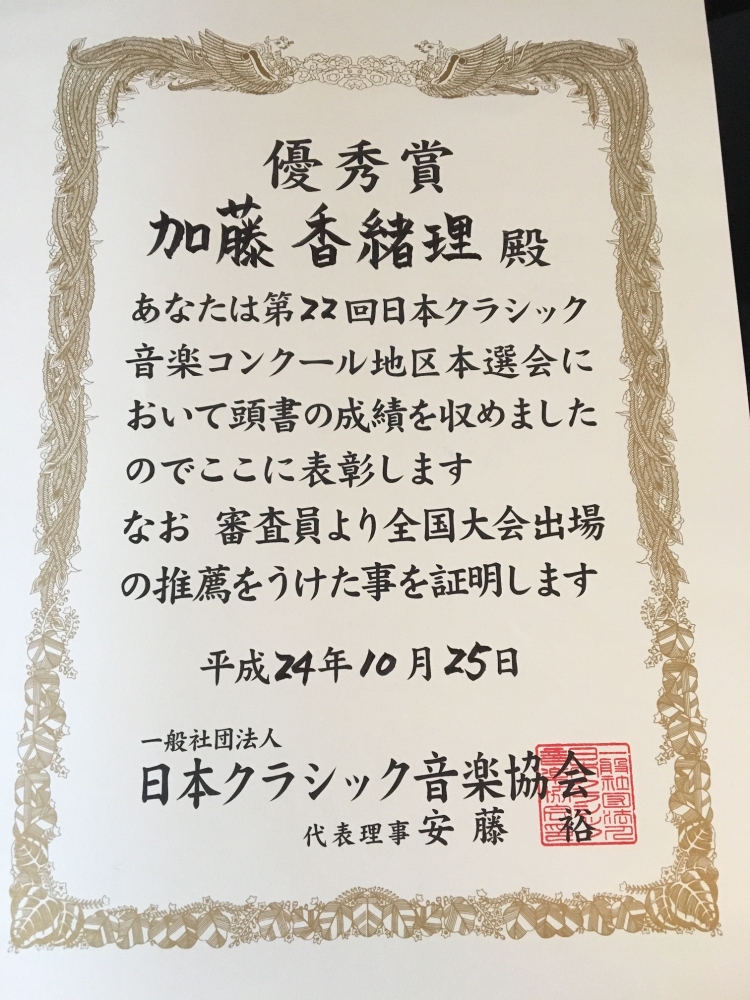 優秀賞
加藤 香緒理 殿
あなたは第22回日本クラシック
音楽コンクール地区本選会に
おいて頭書の成績を収めました
のでここに表彰します
なお 審査員より全国大会出場
の推薦をうけた事を証明します
平成24年10月25日
一般社団法人
日本クラシック音楽協会
代表理事 安藤 裕